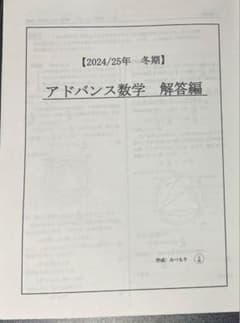 【2024/25年　冬期】
アドバンス数学　解答編
作成：みつもり